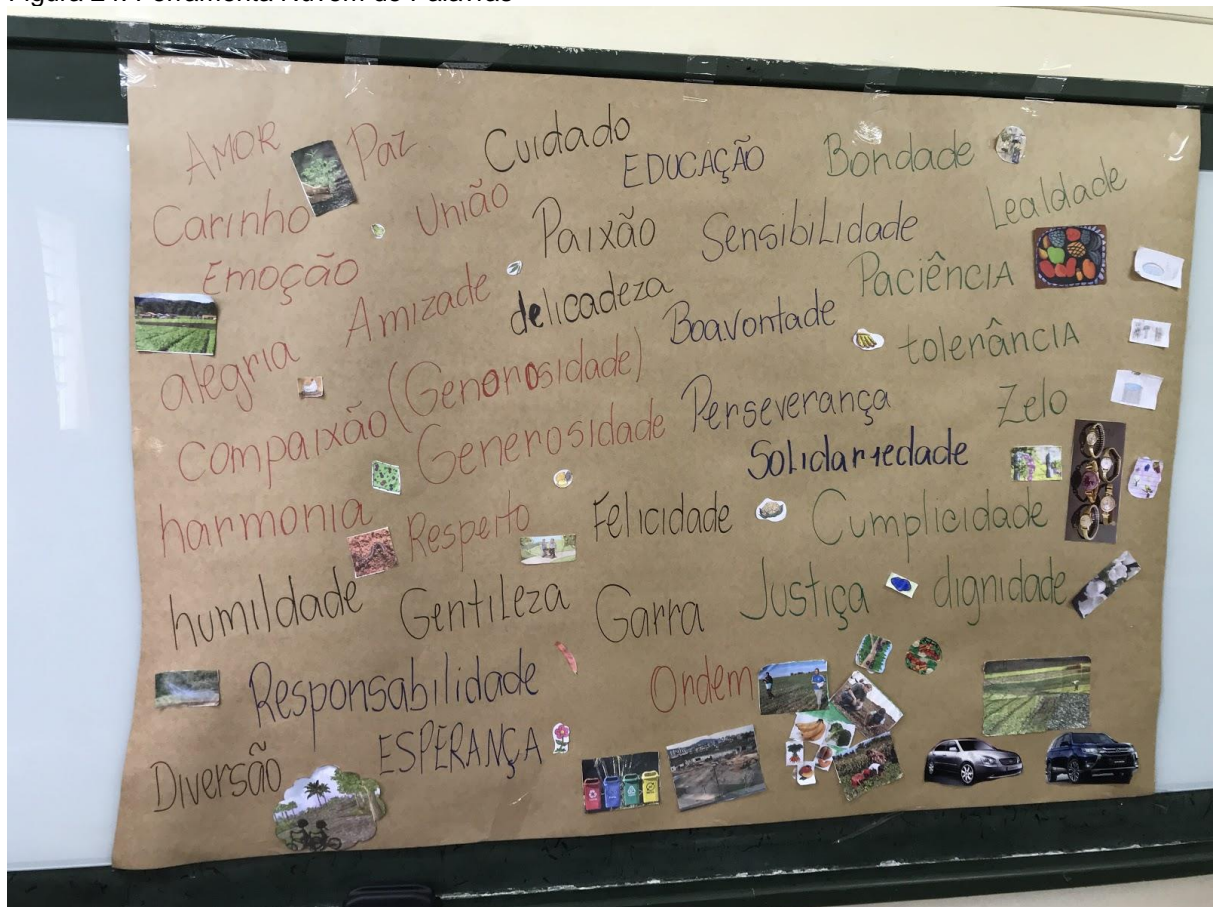 AMOR Paz Cuidado EDUCAÇÃO Bondade
Carinho União Paixão SensibiLidade Lealdade
Emoção Amizade delicadeza Boavontade PaciênciA
alegria (Genorosidade) tolerânciA
compaixão Generosidade Perseverança Zelo
Solidariedade
harmonia Respeito Felicidade Cumplicidade
humildade GentiLeza Garra Justiça dignidade
Responsabilidade Ordem
Diversão ESPERANÇA